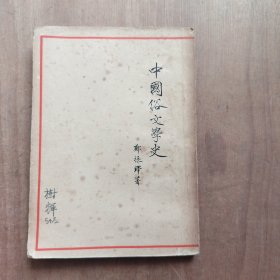 中國俗文學史
鄭振鐸著
樹輝